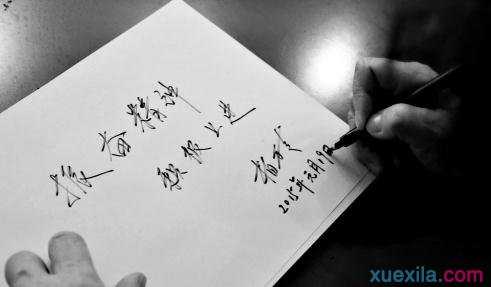 振奋精神
积极上进
2015年元月19日
xuexila.com